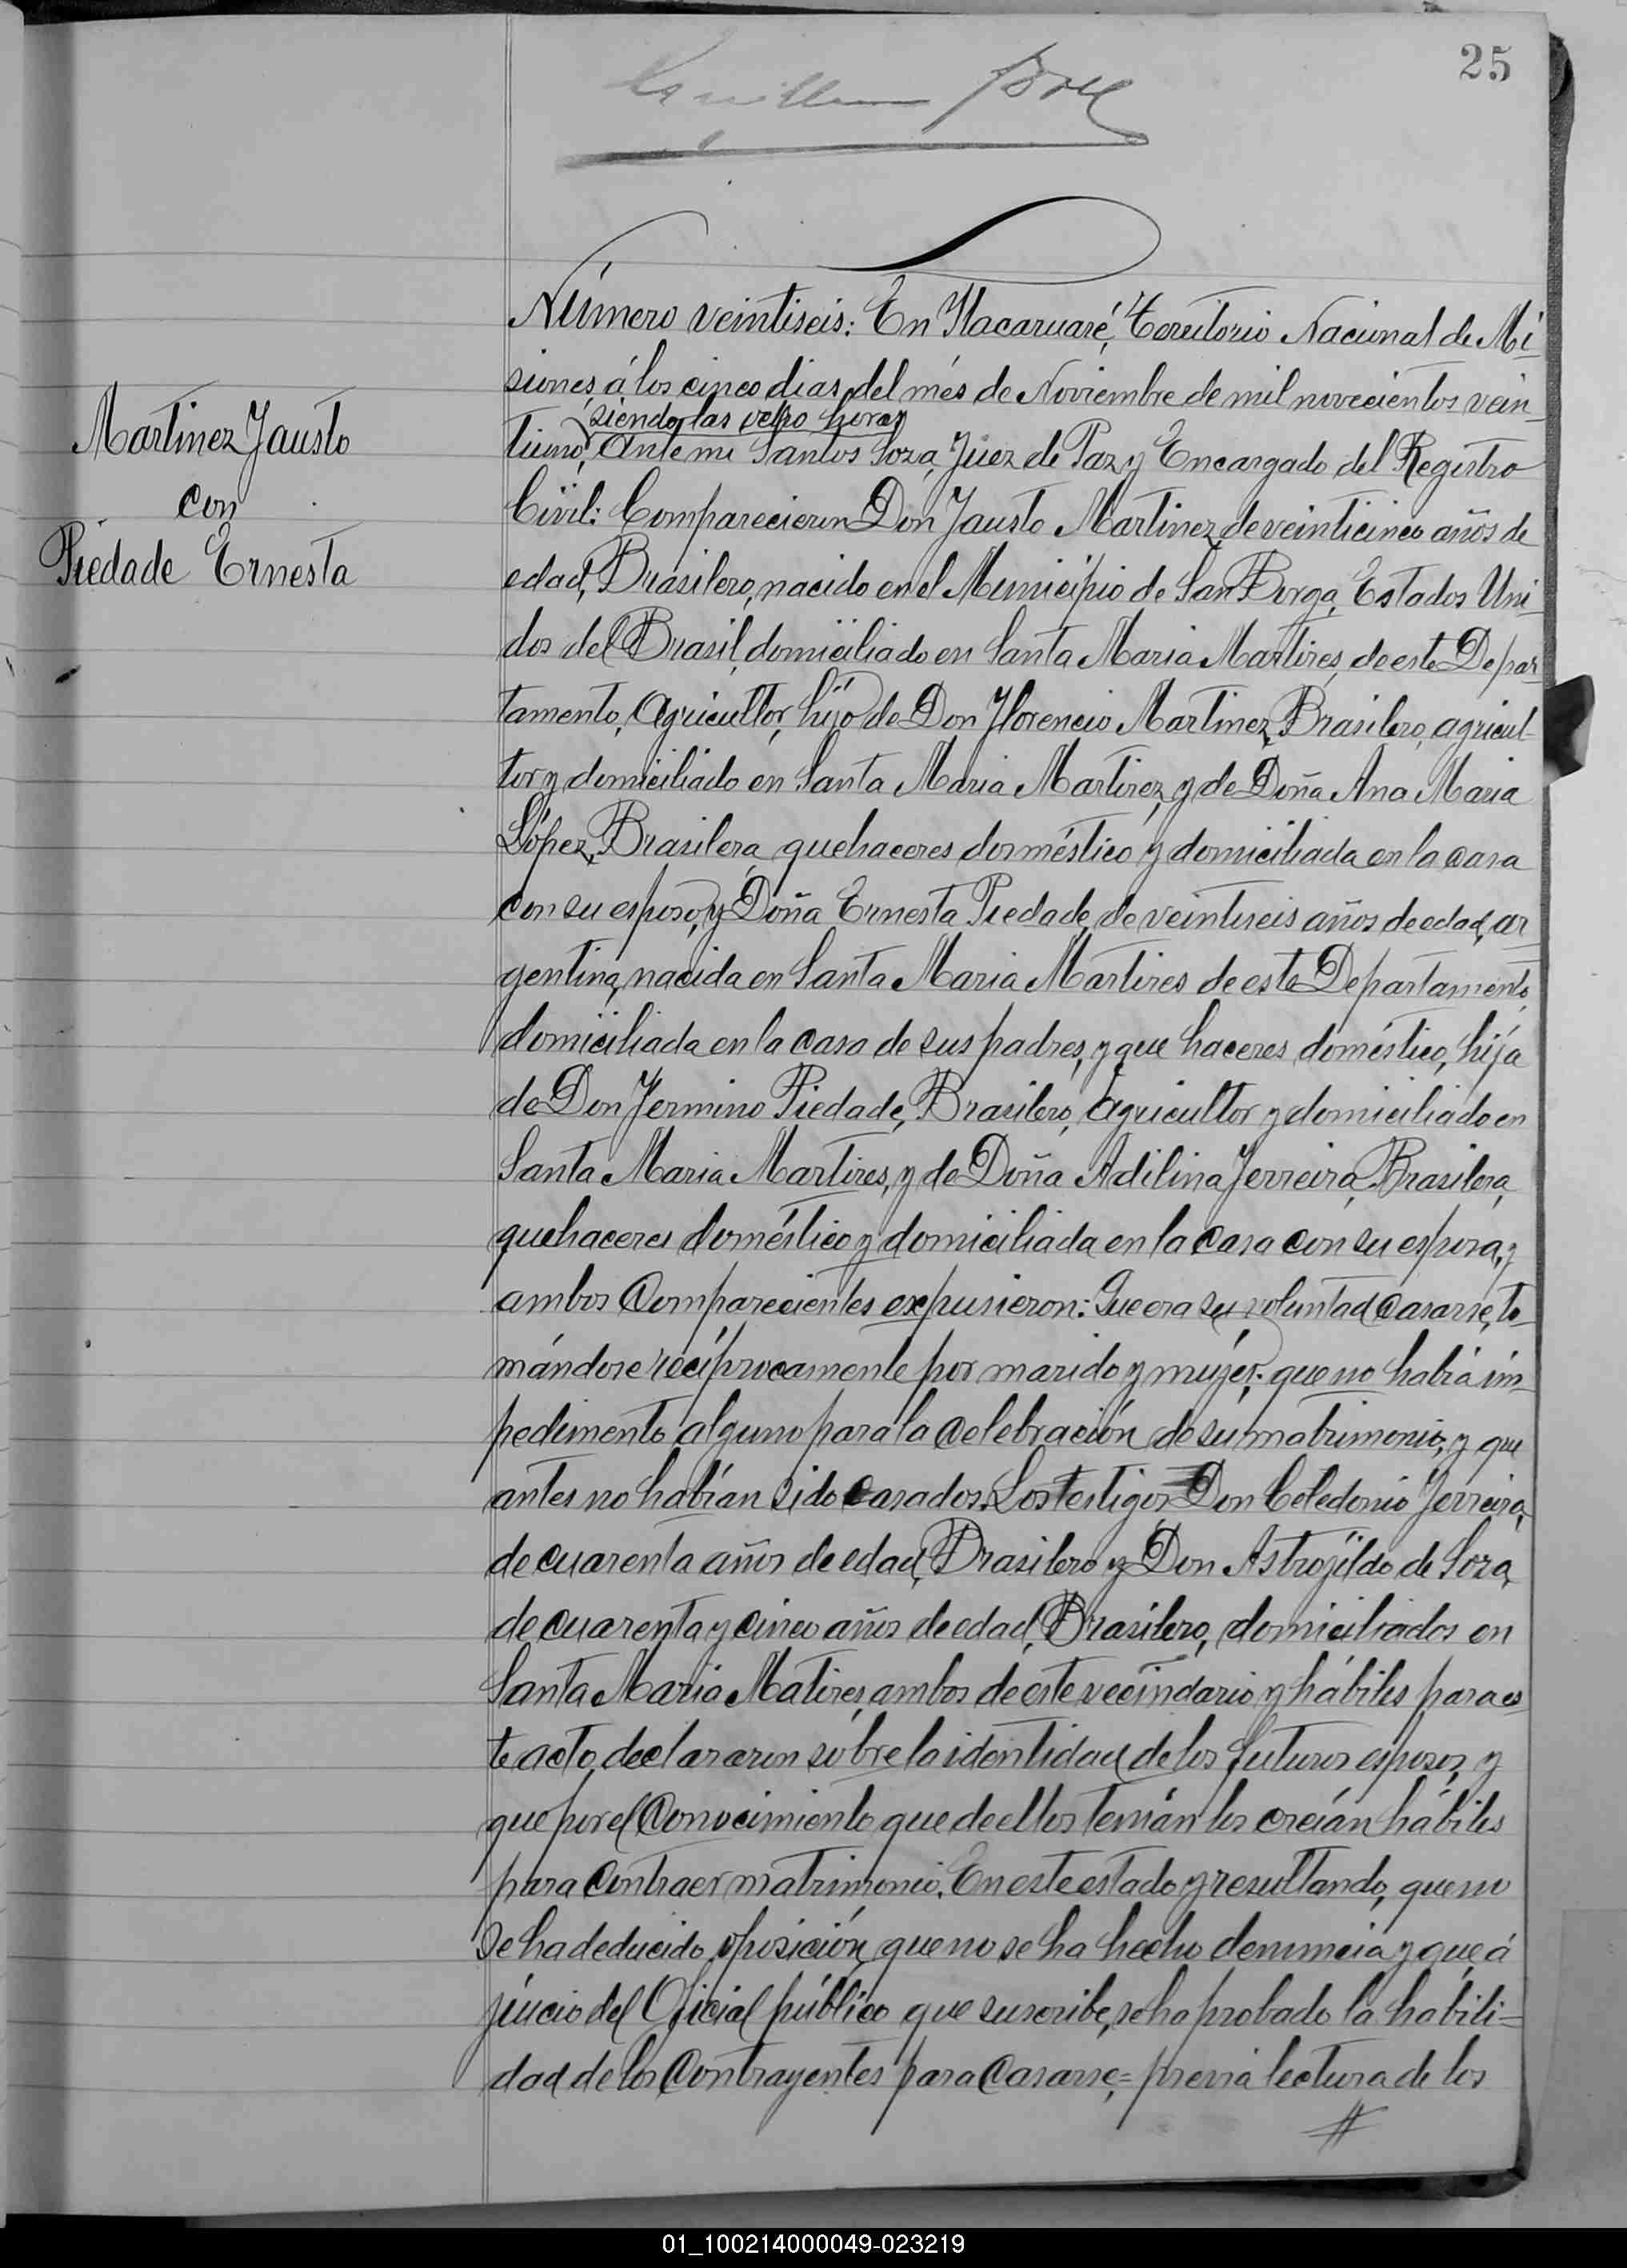 25
Número veintiseis: En Itacaruaré, Territorio Nacional de Mi-
siones, á los cinco dias del més de Noviembre de mil novecientos vein-
siendo las horas
tiuno, Ante mi Santos Soza, Juez de Paz y Encargado del Registro
Martinez Fausto
con
Piedade Ernesta
Civil: Comparecieron Don Fausto Martinez, de veinticinco años de
edad, Brasilero, nacido en el Municipio de San Borga, Estados Uni-
dos del Brasil, domiciliado en Santa Maria Martires, de este Depar-
tamento, Agricultor, hijo de Don Florencio Martinez, Brasilero, agricul-
tor y domiciliado en Santa Maria Martirez, y de Doña Ana Maria
López, Brasilera, quehaceres doméstico y domiciliada en la casa
con su esposo, y Doña Ernesta Piedade, de veintiseis años de edad, ar-
gentina, nacida en Santa Maria Martires de este Departamento,
domiciliada en la casa de sus padres, y que haceres doméstico, hija
de Don Fermino Piedade, Brasilero, Agricultor y domiciliado en
Santa Maria Martires, y de Doña Adilina Ferreira, Brasilera,
quehaceres doméstico y domiciliada en la casa con su esposa, y
ambos Comparecientes expusieron: Que era su voluntad Casarse, to-
mándose recíprocamente por marido y mujér; que no habia im-
pedimento alguno para la Celebración de su matrimonio, y que
antes no habían sido casados. Los testigos Don Celedonio Ferreira,
de cuarenta años de edad, Brasilero y Don Astrojildo de Soza,
de cuarenta y cinco años de edad, Brasilero, domiciliados en
Santa Maria Matires, ambos de este vecindario, y hábiles para es-
te acto, declararon sobre la identidad de los futuros esposos, y
que por el Conocimiento que de ellos tenían los creían hábiles
para Contraer matrimonio. En este estado y resultando, que no
se ha deducido oposición, que no se ha hecho denuncia y que á
júicio del Oficial público que suscribe, se ha probado la habili=
dad de los Contrayentes para Casarse,= previa lectura de los
#
01_100214000049-023219